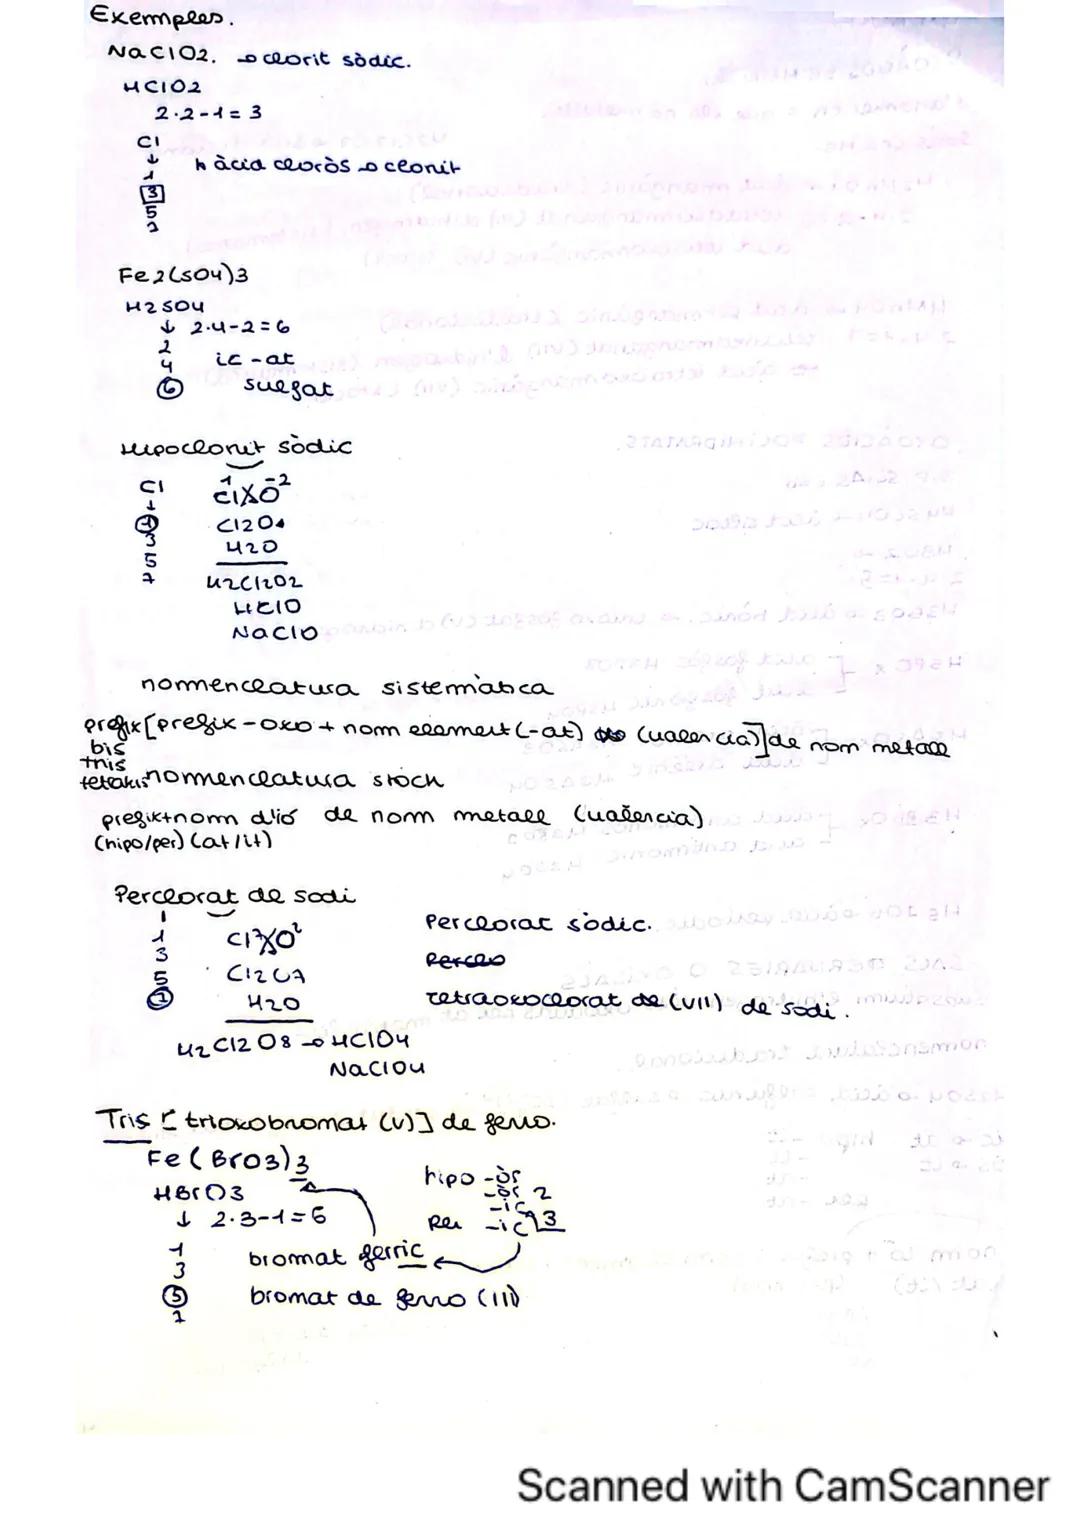 Exemples.
NaClO2. → clorit sòdic.
HClO2
2·2-1=3
Cl
1
3
5
7
↳ àcid clorós → clorit
Fe2(SO4)3
H2SO4
↓ 2·4-2=6
2
4
6
ic-at
sulfat
Hipoclorit sòdic
Cl
1
3
5
7
Cl O-2
Cl2O1
H2O
H2Cl2O2
HClO
NaClO
nomenclatura sistemàtica
prefix[prefix-oxo+nom element(-at) (valencia)]de nom metall
bis
tris
tetrakis
nomenclatura stock
prefix+nom d'ió de nom metall (valencia)
(hipo/per) (at/it)
Perclorat de sodi
1
3
5
7
Cl7 O2
Cl2O7
H2O
H2Cl2O8 → HClO4
NaClO4
Perclorat sòdic.
Perclo
tetraoxoclorat de (VII) de sodi.
Tris [trioxobromat (V)] de ferro.
Fe(BrO3)3
HBrO3
↓ 2·3-1=5
1
3
5
7
hipo -òs
-òs 2
-ic
Per -ic 3
bromat ferric
bromat de ferro (III)
Scanned with CamScanner